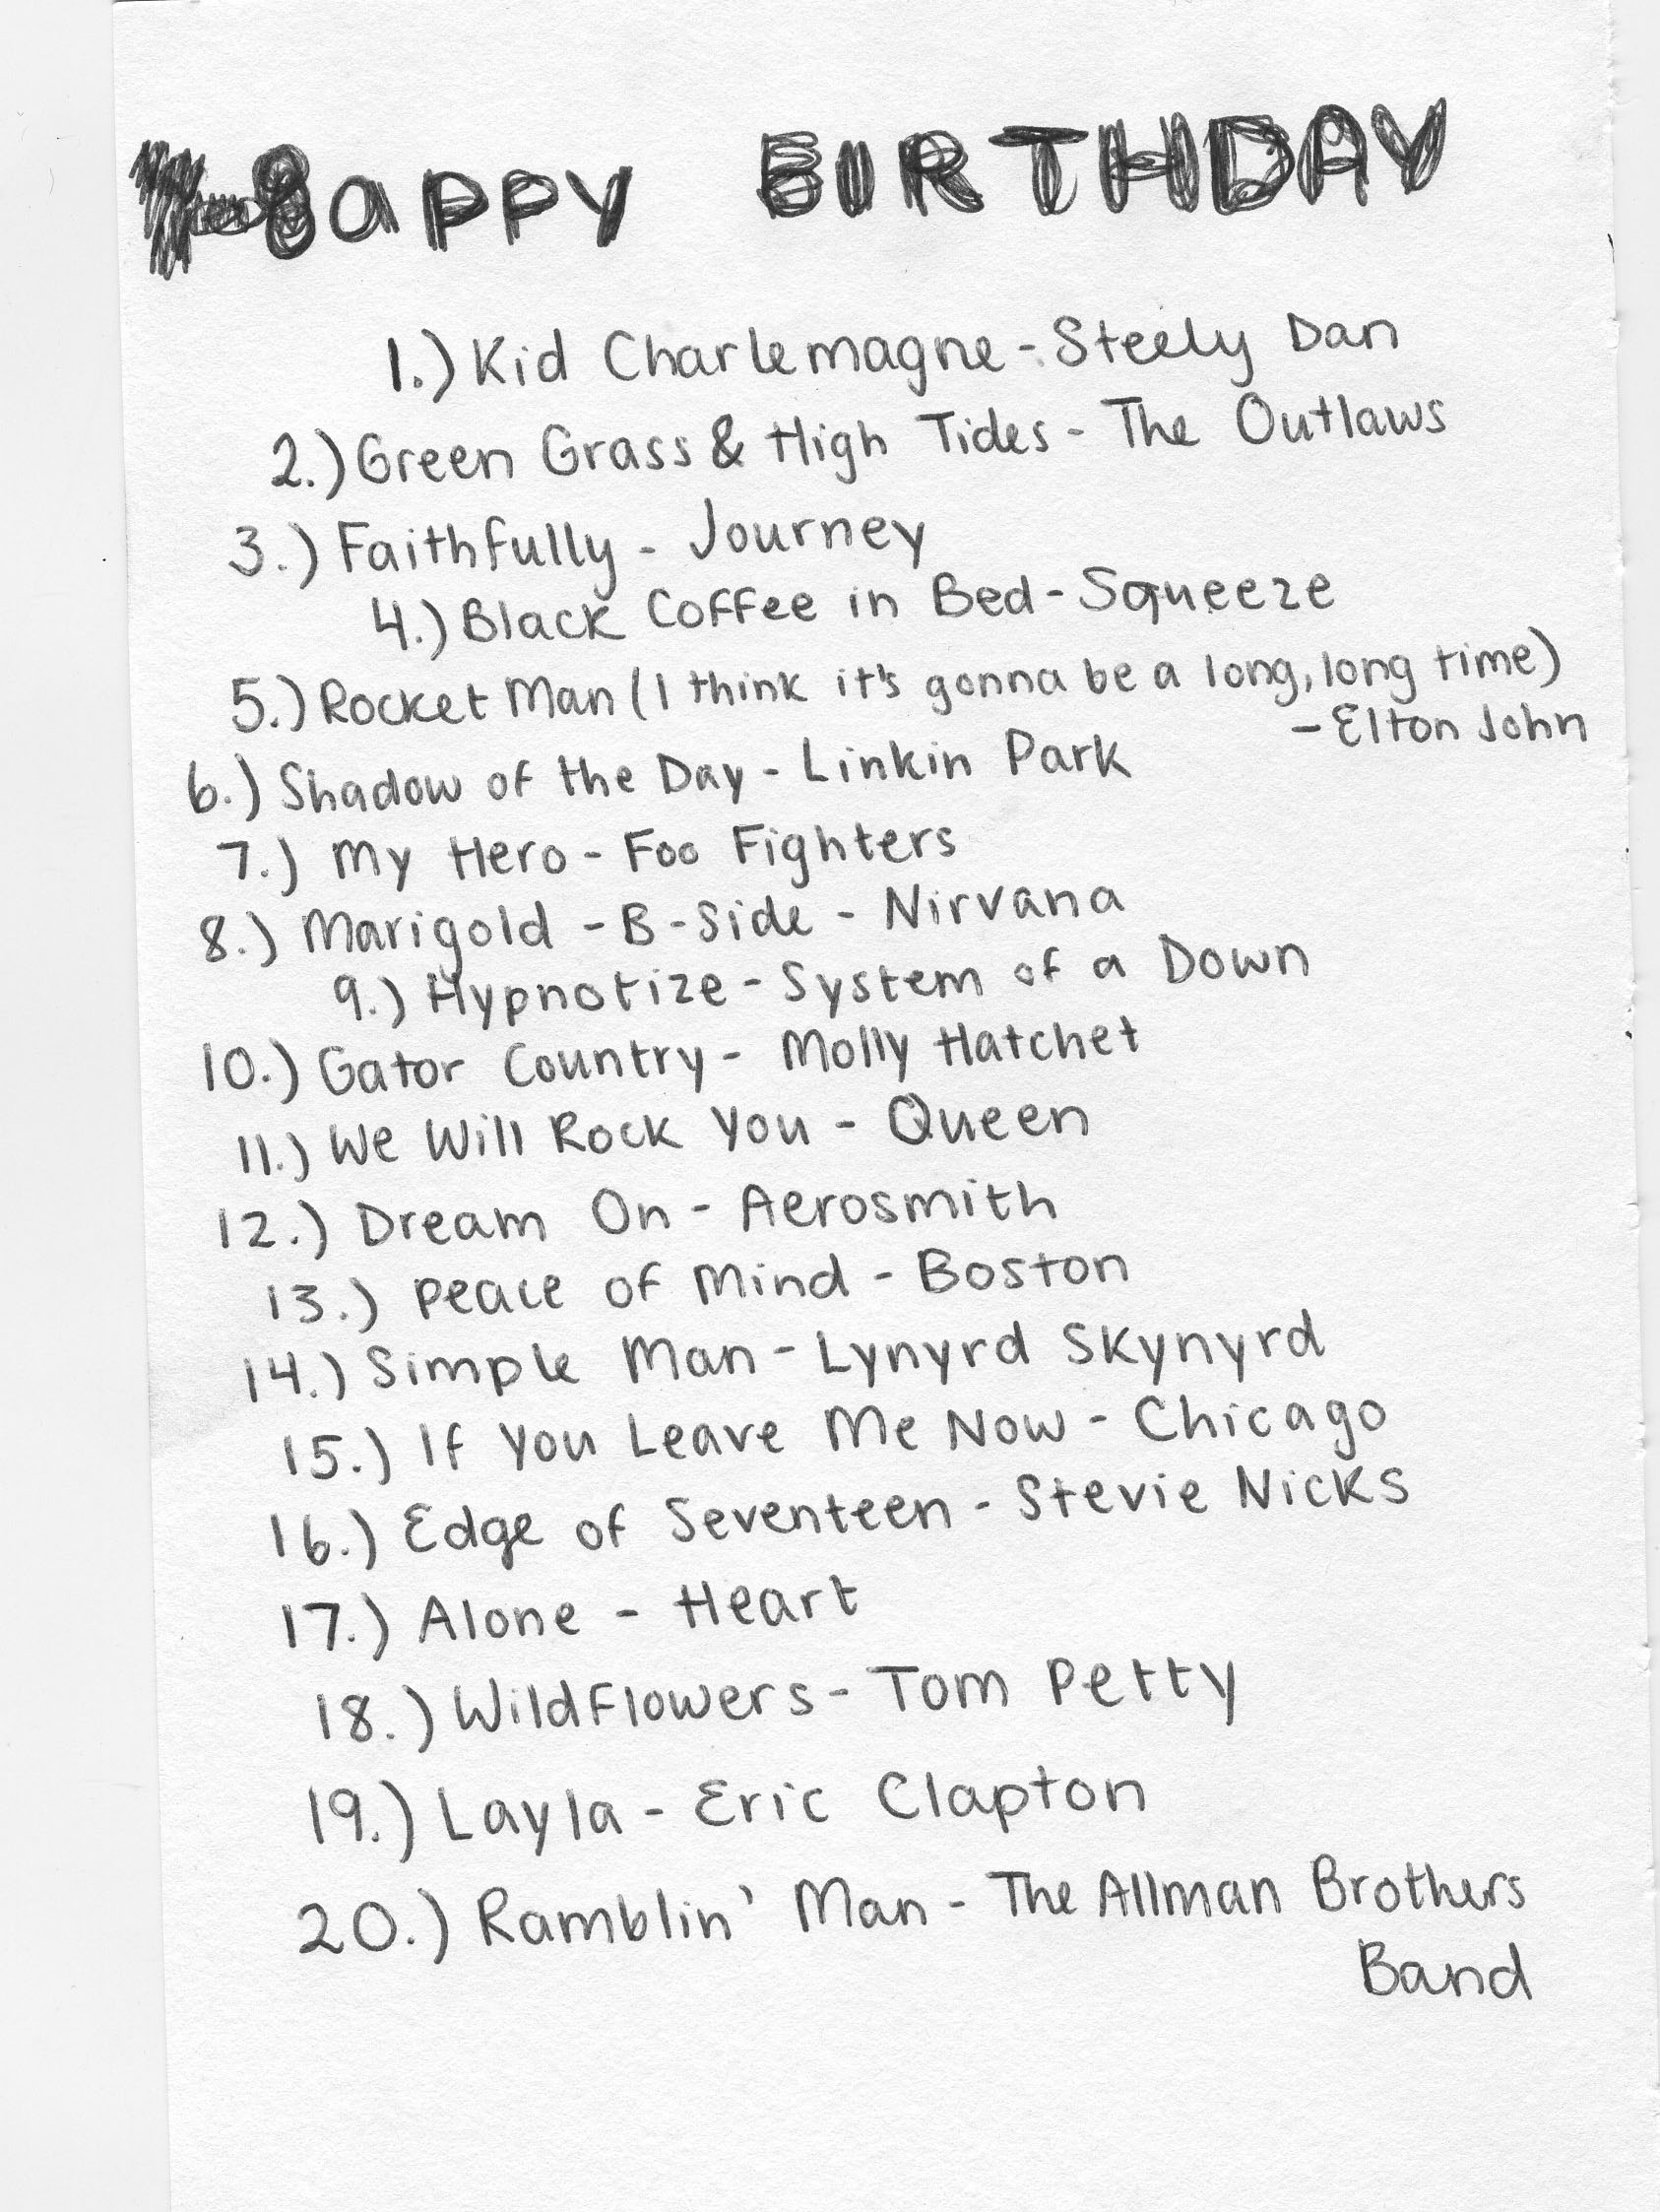 Happy BIRTHDAY
1.) Kid Charlemagne - Steely Dan
2.) Green Grass & High Tides - The Outlaws
3.) Faithfully - Journey
4.) Black Coffee in Bed - Squeeze
5.) Rocket Man (I think it's gonna be a long, long time)
- Elton John
6.) Shadow of the Day - Linkin Park
7.) My Hero - Foo Fighters
8.) Marigold - B-Side - Nirvana
9.) Hypnotize - System of a Down
10.) Gator Country - Molly Hatchet
11.) We Will Rock You - Queen
12.) Dream On - Aerosmith
13.) Peace of Mind - Boston
14.) Simple Man - Lynyrd Skynyrd
15.) If You Leave Me Now - Chicago
16.) Edge of Seventeen - Stevie Nicks
17.) Alone - Heart
18.) Wildflowers - Tom Petty
19.) Layla - Eric Clapton
20.) Ramblin' Man - The Allman Brothers
Band